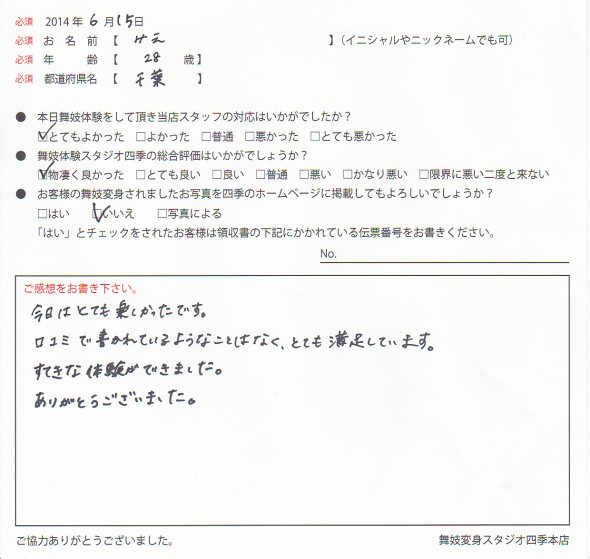 必須 2014年 6月15日
必須 お名前【 けえ 】(イニシャルやニックネームでも可)
必須 年齢【 28 歳】
必須 都道府県名【 千葉 】
● 本日舞妓体験をして頂き当店スタッフの対応はいかがでしたか?
☑とてもよかった □よかった □普通 □悪かった □とても悪かった
● 舞妓体験スタジオ四季の総合評価はいかがでしょうか?
☑物凄く良かった □とても良い □良い □普通 □悪い □かなり悪い □限界に悪い二度と来ない
● お客様の舞妓変身されましたお写真を四季のホームページに掲載してもよろしいでしょうか?
□はい ☑いいえ □写真による
「はい」とチェックをされたお客様は領収書の下記にかかれている伝票番号をお書きください。
No.
ご感想をお書き下さい。
今日はとても楽しかったです。
口コミで書かれているようなことはなく、とても満足しています。
すてきな体験ができました。
ありがとうございました。
ご協力ありがとうございました。
舞妓変身スタジオ四季本店